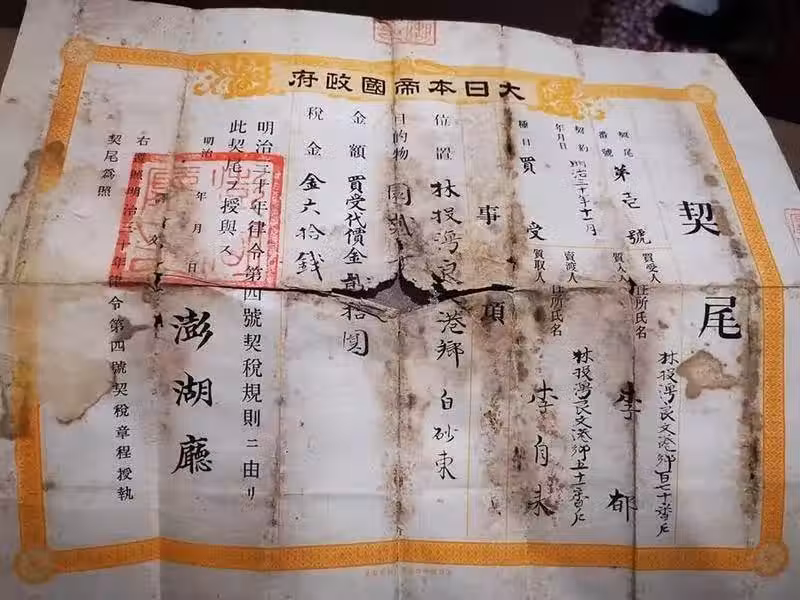 大日本帝國政府
契尾
契尾番號 第壱號
契約年月日 明治三十年十一月
種目 買受
買受人 質人 住所氏名 林投灣良文港鄉百七十番戶 李郁
賣渡人 質取人 住所氏名 林投灣良文港鄉五十一番戶 李自来
事項
位置 林投灣良 港鄉 白砂東
目的物 園
金額 買受代價金 拾圓
税金 金六拾錢
明治三十年律令第四號契稅規則ニ由リ
此契尾ヲ授與ス
明治 年 月 日
澎湖廳
右遵照明治三十年律令第四號契稅章程授執
契尾爲照